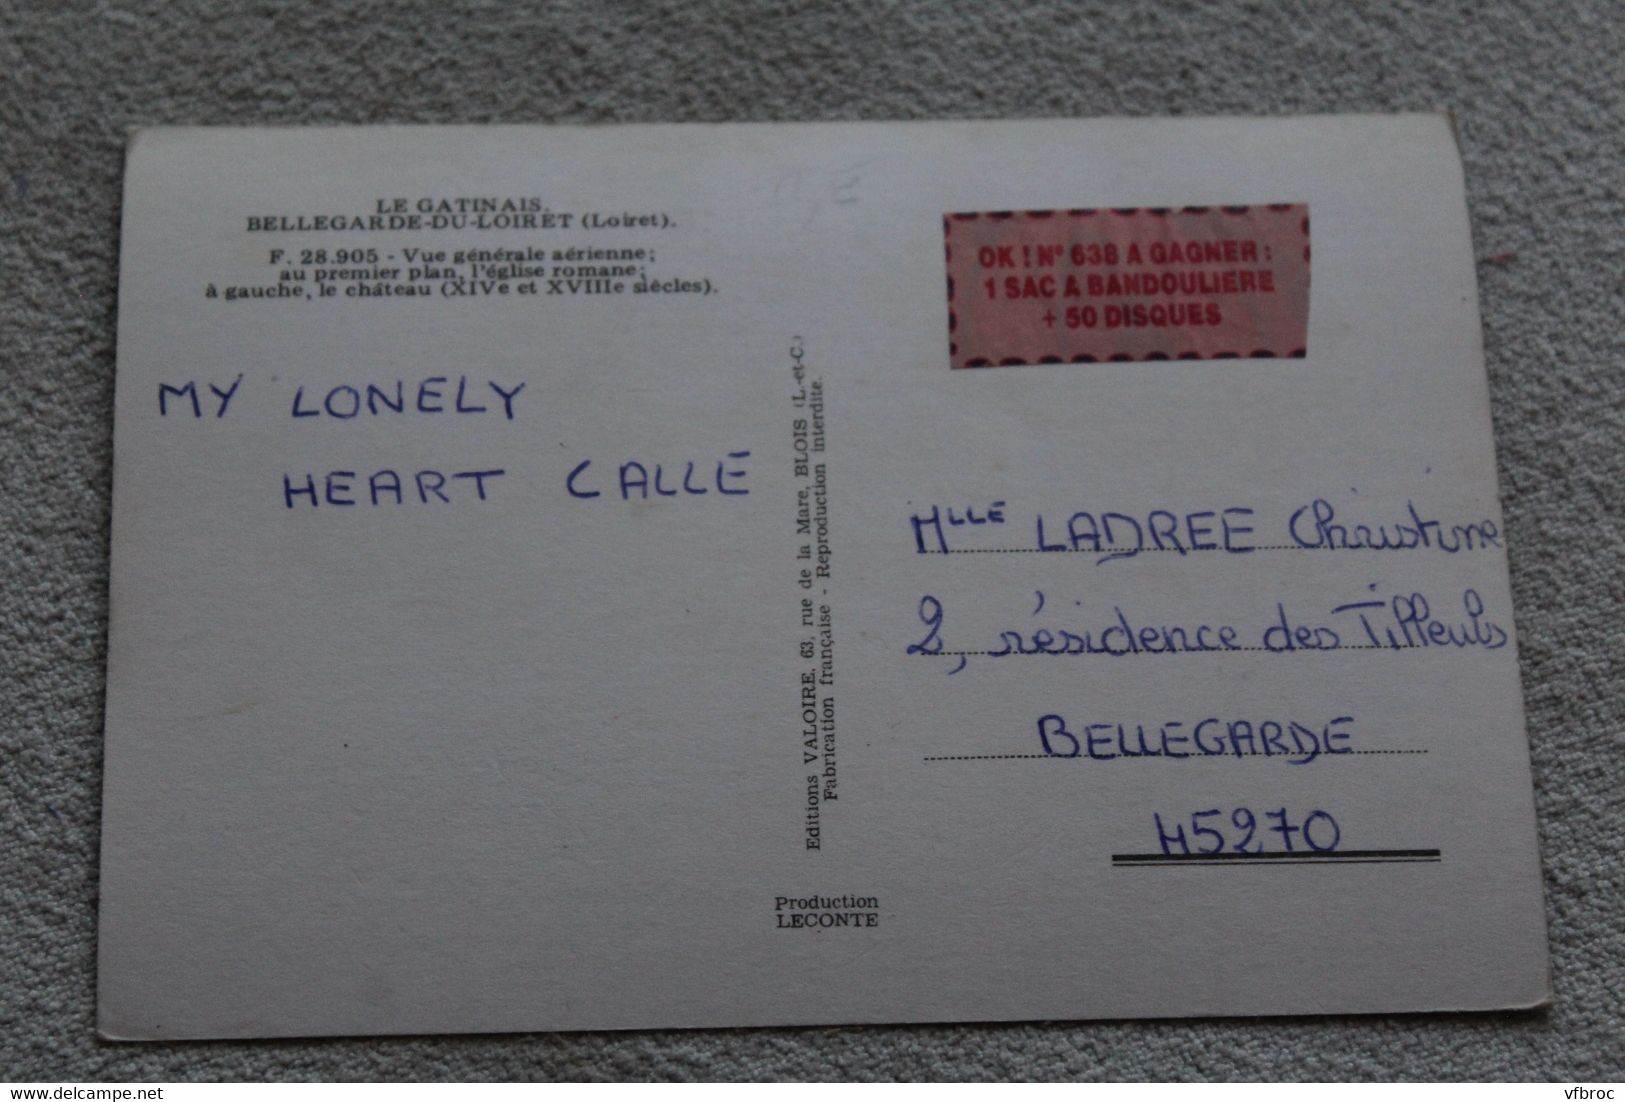 LE GATINAIS.
BELLEGARDE-DU-LOIRET (Loiret).
F. 28.905 - Vue générale aérienne;
au premier plan, l'église romane;
à gauche, le château (XIVe et XVIIIe siècles).
MY LONELY
HEART CALLE
Editions VALOIRE, 63, rue de la Mare, BLOIS (L.-et-C.)
Fabrication française - Reproduction interdite.
Production
LECONTE
OK ! N° 638 A GAGNER :
1 SAC A BANDOULIERE
+ 50 DISQUES
Mlle LADREE Christine
2, résidence des Tilleuls
BELLEGARDE
45270
delcampe.net
vfbroc